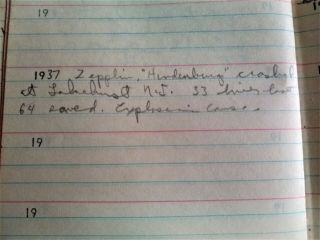 19
1937 Zepplin, "Hindenburg" crashed
at Lakehurst N.J. 33 lives lost
64 saved. Explosion cause.
19
19